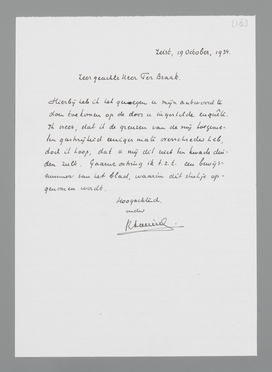 (16)
Zeist, 19 October, 1939.
Zeer geachte Heer Ter Braak.
Hierbij heb ik het genoegen u mijn antwoord te
doen toekomen op de door u ingestelde enquête.
Ik vrees, dat ik de grenzen van de mij toegeme-
ten gastvrijheid eenigermate overschreden heb,
doch ik hoop, dat u mij dit niet ten kwade dui-
den zult. Gaarne ontving ik t.z.t. een bewijs-
nummer van het blad, waarin dit stukje op-
genomen wordt.
Hoogachtend,